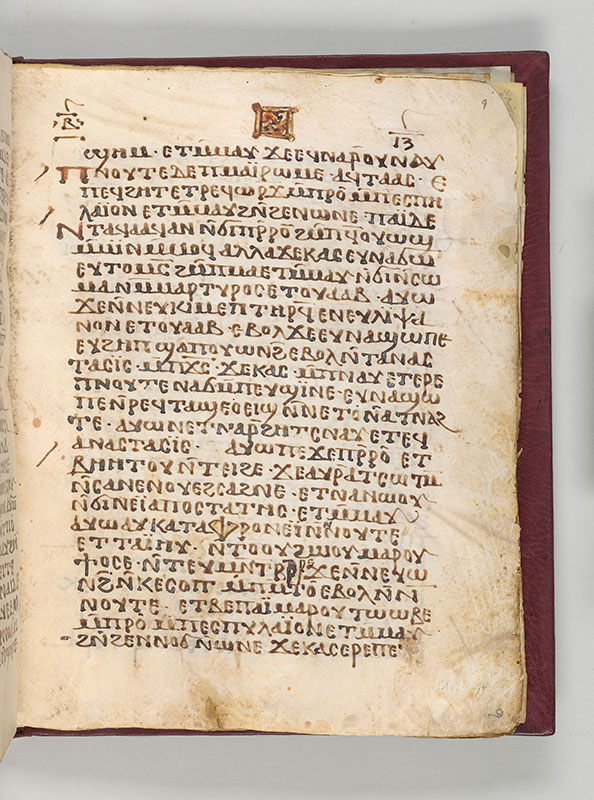 13
ϣⲏⲙ · ⲉⲧⲙ̄ⲙⲁⲩ ϫⲉⲉϥⲛⲁⲣ̄ⲟⲩⲛⲁⲩ
ⲡⲛⲟⲩⲧⲉ ⲇⲉ ⲡⲙⲁⲓ̈ⲣⲱⲙⲉ · ⲁϥⲧⲁⲁⲥ · ⲉ
ⲡⲉϥϩⲏⲧ ⲉⲧⲣⲉϥⲱⲣϫ̄ ⲙ̄ⲡⲣⲟ ⲙ̄ⲡⲉⲥⲡⲏ
ⲗⲁⲓⲟⲛ ⲉⲧⲙ̄ⲙⲁⲩ ϩⲛ̄ϩⲉⲛⲱⲛⲉ · ⲡⲁⲓ̈ ⲇⲉ
ⲛⲧⲁϥⲁⲁϥ ⲁⲛ ⲛ̄ϭⲓ ⲡⲣ̄ⲣⲟ ϩⲙ̄ⲡϥⲟⲩⲱϣ
ⲙ̄ⲙⲓⲛ ⲙ̄ⲙⲟϥ ⲁⲗⲗⲁ ϫⲉⲕⲁⲥ ⲉⲩⲛⲁϭⲱ
ⲉⲩⲧⲟⲙⲥ̄ ϩⲙ̄ⲡⲙⲁ ⲉⲧⲙ̄ⲙⲁⲩ ⲛ̄ϭⲓ ⲛ̄ⲥⲱ
ⲙⲁ ⲛ̄ⲙ̄ⲙⲁⲣⲧⲩⲣⲟⲥ ⲉⲧⲟⲩⲁⲁⲃ · ⲁⲩⲱ
ϫⲉⲛ̄ⲛⲉⲩⲕⲓⲙ ⲉⲡⲧⲏⲣϥ̄ ⲉⲛⲉⲩⲗⲓⲯⲁ
ⲛⲟⲛ ⲉⲧⲟⲩⲁⲁⲃ · ⲉⲃⲟⲗ ϫⲉ ⲉⲩⲛⲁϣⲱⲡⲉ
ⲉⲩϩⲏⲡ ϣⲁⲡⲟⲩⲱⲛϩ̄ ⲉⲃⲟⲗ ⲛ̄ⲧⲁⲛⲁⲥ
ⲧⲁⲥⲓⲥ · ⲙ̄ⲡⲭ̄ⲥ̄ · ϫⲉⲕⲁⲥ · ⲙ̄ⲡⲛⲁⲩ ⲉⲧⲉⲣⲉ
ⲡⲛⲟⲩⲧⲉ ⲛⲁϭⲙ̄ⲡⲉⲩϣⲓⲛⲉ · ⲉⲩⲛⲁϣⲱ
ⲡⲉ ⲛ̄ⲣⲉϥⲧⲁϣⲉⲟⲉⲓϣ ⲛ̄ⲛⲉⲧⲟ̄ ⲛⲁⲧⲛⲁϩ
ⲧⲉ · ⲁⲩⲱ ⲛⲉⲧⲛⲁⲣ̄ϩⲏⲧ ⲥⲛⲁⲩ ⲉⲧⲉϥ
ⲁⲛⲁⲥⲧⲁⲥⲓⲥ · ⲁⲩⲱ ⲡⲉϫⲉ ⲡⲣ̄ⲣⲟ ⲉⲧ
ⲃⲏⲏⲧⲟⲩ ⲛ̄ⲧⲉⲓϩⲉ · ϫⲉ ⲁⲩⲣ̄ⲁⲧⲥⲱⲧⲙ̄
ⲛ̄ⲥⲁⲛⲉⲛⲟⲩⲉϩⲥⲁϩⲛⲉ · ⲉⲧⲛⲁⲛⲟⲩⲟⲩ
ⲛ̄ϭⲓ ⲛⲉⲓ̈ⲁⲡⲟⲥⲧⲁⲧⲏⲥ · ⲉⲧⲙ̄ⲙⲁⲩ
ⲁⲩⲱ ⲁⲩⲕⲁⲧⲁⲫⲣⲟⲛⲉⲓ ⲛ̄ⲛ̄ⲛⲟⲩⲧⲉ
ⲉⲧⲧⲁⲓ̈ⲏⲩ · ⲛ̄ⲧⲟⲟⲩ ϩⲱⲟⲩ ⲙⲁⲣⲟⲩ
ϥⲟϭⲉ · ⲛ̄ⲧⲉⲩⲙⲛ̄ⲧⲣ̄ⲣⲟ ϫⲉⲛ̄ⲛⲉⲩⲱ
ⲛϩ̄ ⲛ̄ⲕⲉⲥⲟⲡ ⲙ̄ⲡⲙ̄ⲧⲟ̄ ⲉⲃⲟⲗ ⲛ̄ⲛ
ⲛⲟⲩⲧⲉ · ⲉⲧⲃⲉⲡⲁⲓ ⲙⲁⲣⲟⲩⲧⲱⲱⲃⲉ
ⲙ̄ⲡⲣⲟ̄ ⲙ̄ⲡⲉⲥⲡⲩⲗⲁⲓ̈ⲟⲛ ⲉⲧⲙ̄ⲙⲁⲩ
ϩⲛ̄ϩⲉⲛⲛⲟϭ ⲛ̄ⲱⲛⲉ ϫⲉⲕⲁⲥ ⲉⲣⲉⲡⲉ